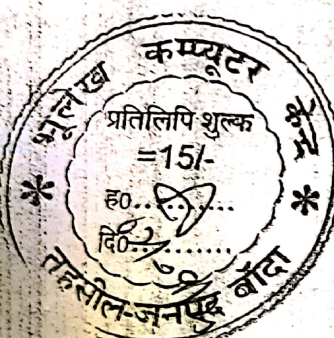 भूलेख कम्प्यूटर केन्द्र
प्रतिलिपि शुल्क
=15/-
ह0..........
दि0..........
तहसील-जनपद बाँदा